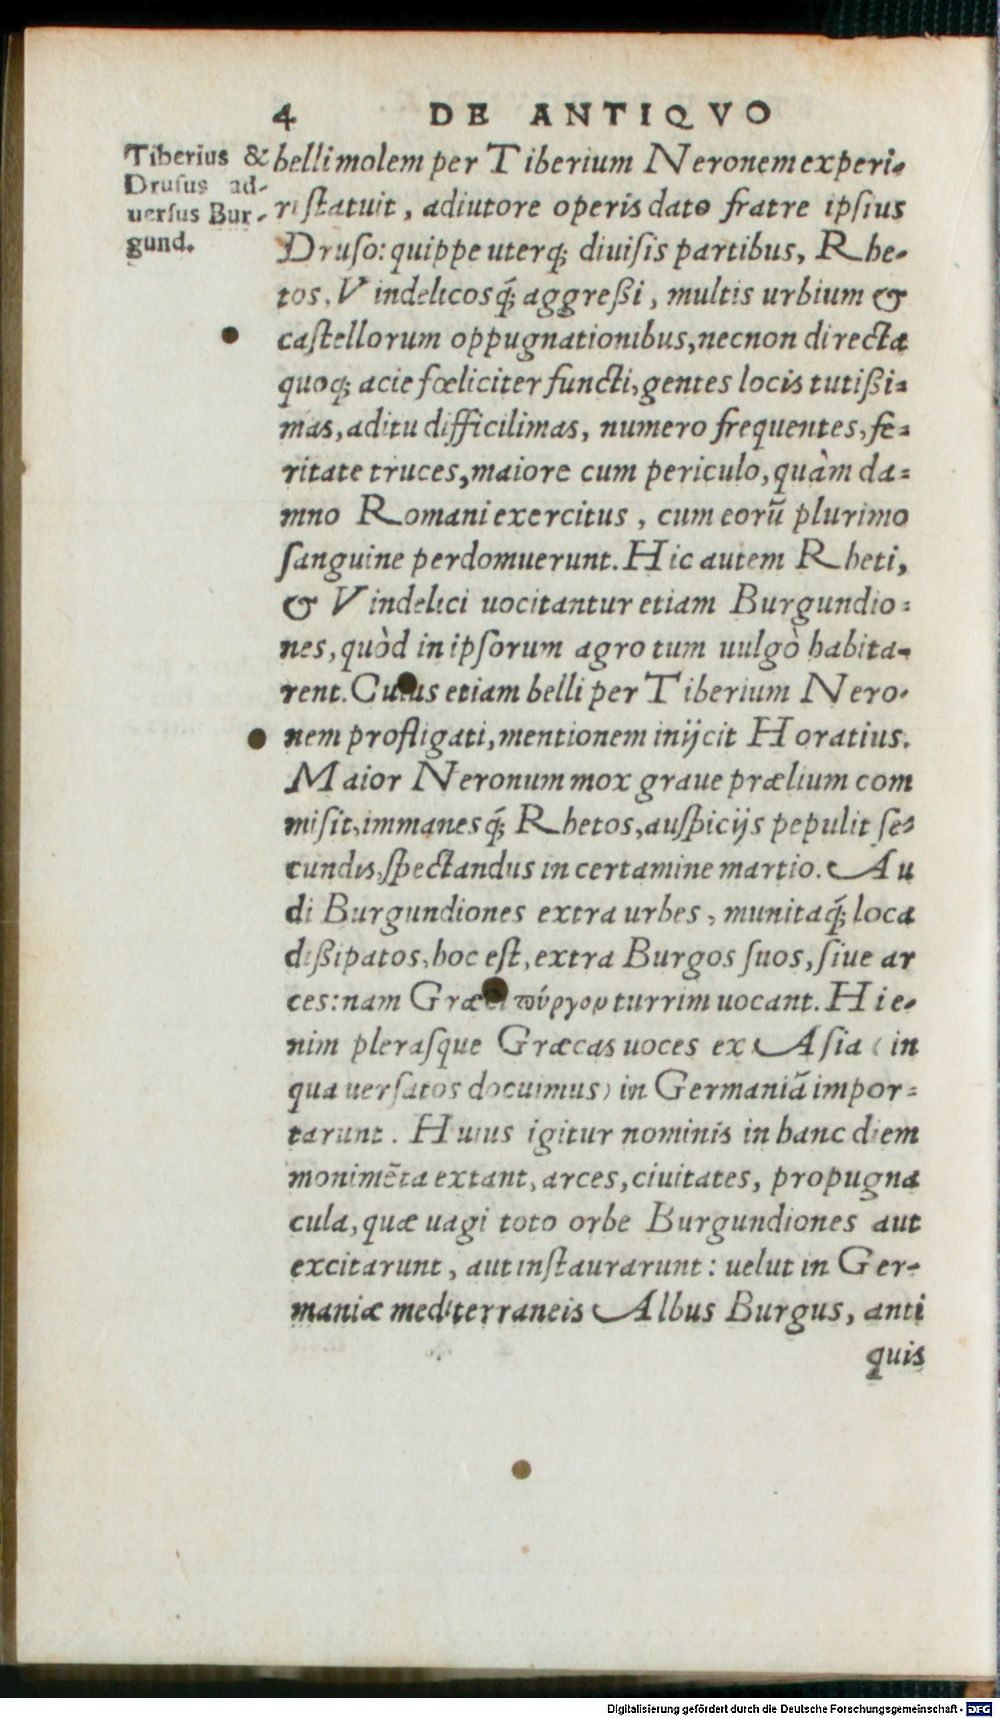 4 DE ANTIQVO
Tiberius &
Drusus ad-
uersus Bur-
gund.
belli molem per Tiberium Neronem experi-
ri ſtatuit, adiutore operis dato fratre ipſius
Druſo: quippe uterq; diuiſis partibus, Rhe-
tos, Vindelicosq́; aggreßi, multis urbium &
caſtellorum oppugnationibus, necnon directa
quoq; acie fœliciter functi, gentes locis tutißi-
mas, aditu difficilimas, numero frequentes, fe-
ritate truces, maiore cum periculo, quàm da-
mno Romani exercitus, cum eorũ plurimo
ſanguine perdomuerunt. Hic autem Rheti,
& Vindelici uocitantur etiam Burgundio-
nes, quòd in ipſorum agro tum uulgò habita-
rent. Cuius etiam belli per Tiberium Nero-
nem profligati, mentionem inijcit Horatius.
Maior Neronum mox graue prælium com
miſit, immanesq́; Rhetos, auſpicijs pepulit ſe-
cundis, ſpectandus in certamine martio. Au
di Burgundiones extra urbes, munitaq́; loca
dißipatos, hoc eſt, extra Burgos ſuos, ſiue ar
ces: nam Græci πύργον turrim uocant. Hi e-
nim plerasque Græcas uoces ex Aſia (in
qua uerſatos docuimus) in Germaniã impor-
tarunt. Huius igitur nominis in hanc diem
monimẽta extant, arces, ciuitates, propugna
cula, quæ uagi toto orbe Burgundiones aut
excitarunt, aut inſtaurarunt: uelut in Ger-
maniæ mediterraneis Albus Burgus, anti
quis
Digitalisierung gefördert durch die Deutsche Forschungsgemeinschaft - DFG